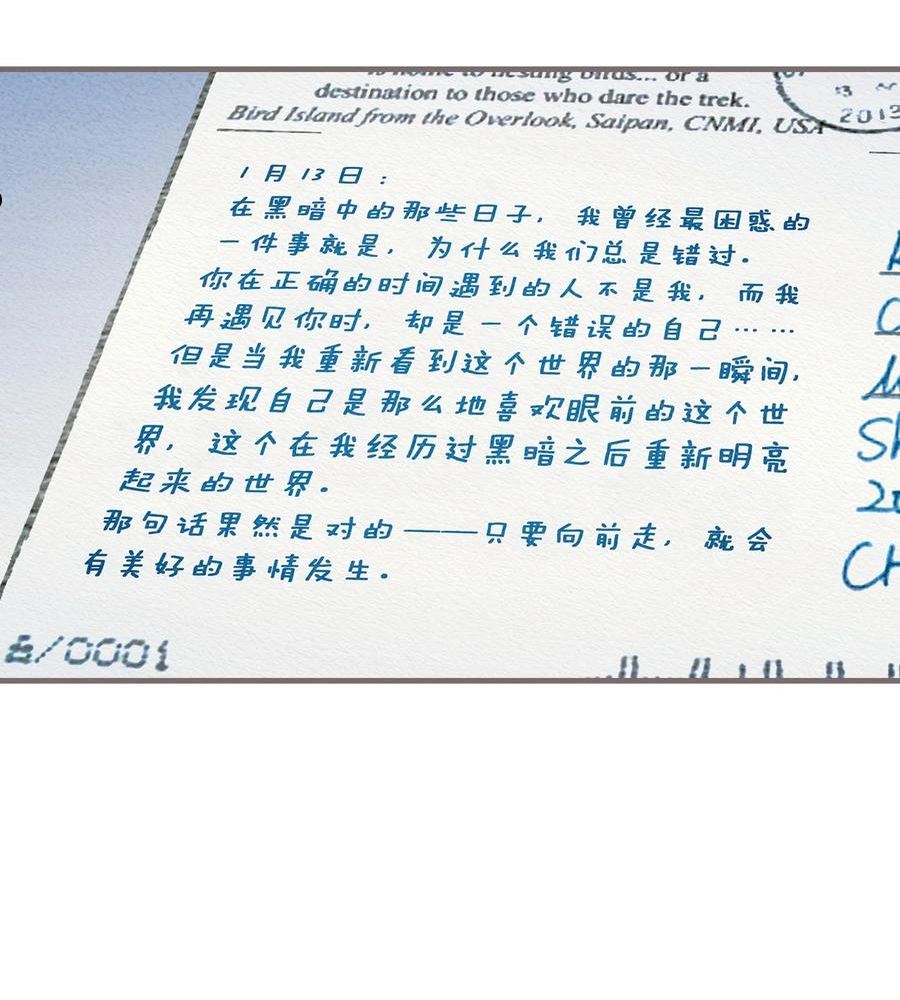 is home to nesting birds... or a
destination to those who dare the trek.
Bird Island from the Overlook, Saipan, CNMI, USA
2013
1月13日：
在黑暗中的那些日子，我曾经最困惑的
一件事就是，为什么我们总是错过。
你在正确的时间遇到的人不是我，而我
再遇见你时，却是一个错误的自己……
但是当我重新看到这个世界的那一瞬间，
我发现自己是那么地喜欢眼前的这个世
界，这个在我经历过黑暗之后重新明亮
起来的世界。
那句话果然是对的——只要向前走，就会
有美好的事情发生。
/0001